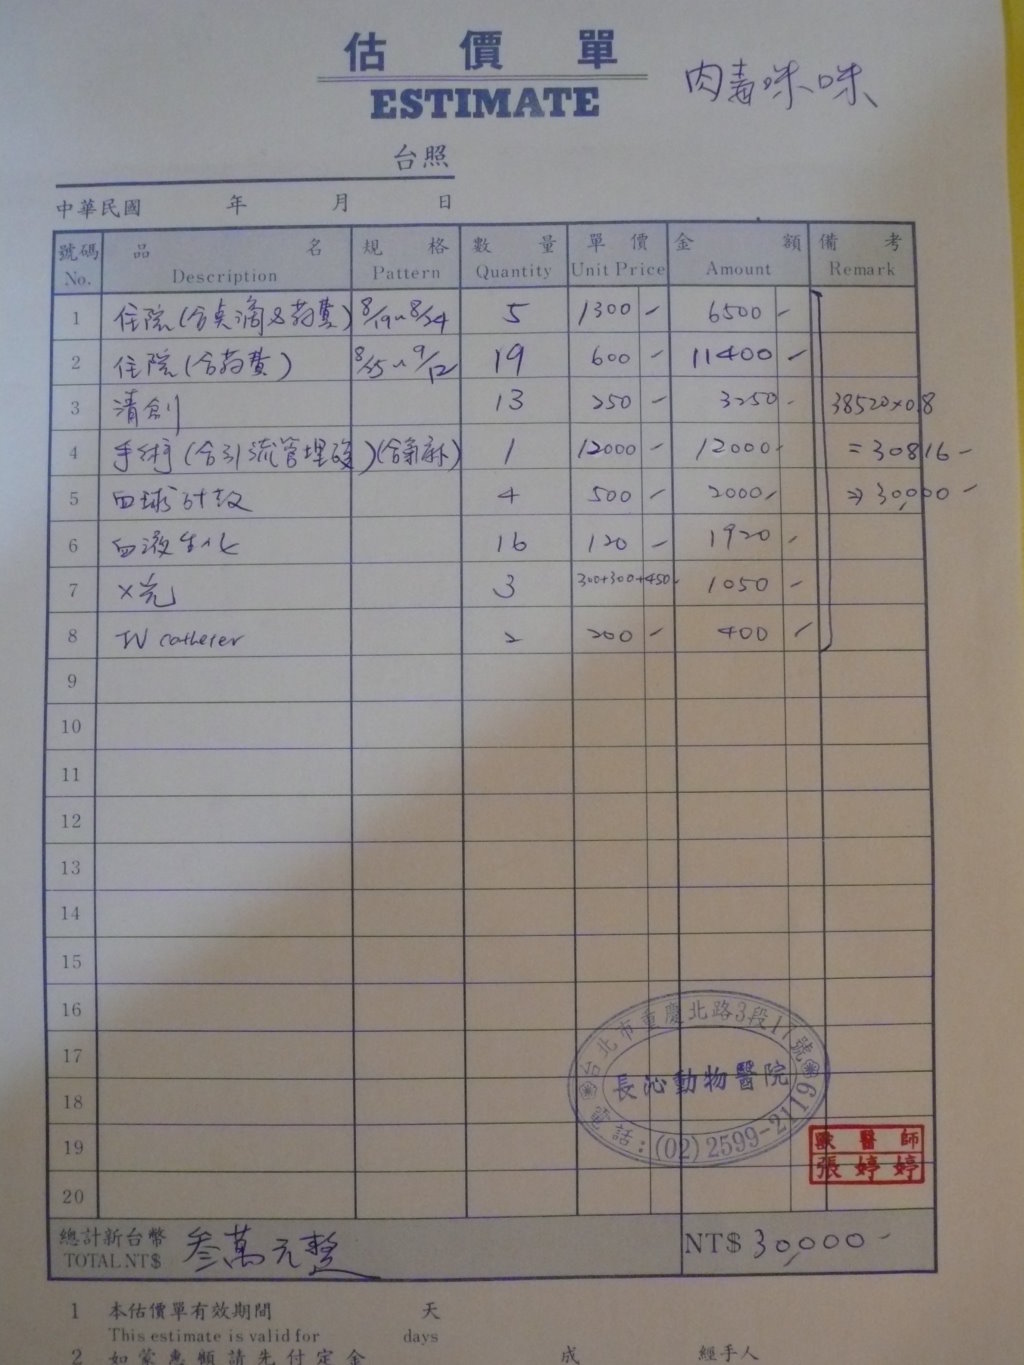 估價單
ESTIMATE
肉毒咪咪
台照
中華民國 年 月 日
號碼 品名 規格 數量 單價 金額 備考
No. Description Pattern Quantity Unit Price Amount Remark
1 住院(含点滴及葯費) 8/19~8/24 5 1300 - 6500 -
2 住院(含葯費) 8/25~9/12 19 600 - 11400 -
3 清創 13 250 - 3250 - 38520×0.8
4 手術(含引流管埋設)(含氣麻) 1 12000 - 12000 - =30816 -
5 血球計数 4 500 - 2000 - ⇒30,000 -
6 血液生化 16 120 - 1920 -
7 X光 3 300+300+450 - 1050 -
8 IV catheter 2 200 - 400 -
9
10
11
12
13
14
15
16
17
18
19
20
台北市重慶北路3段11號
長沁動物醫院
電話:(02)2599-2119
獸醫師
張婷婷
總計新台幣 叁萬元整
TOTAL NT$ NT$ 30,000 -
1 本估價單有效期間 天
This estimate is valid for days
2 如蒙惠顧請先付定金 成 經手人